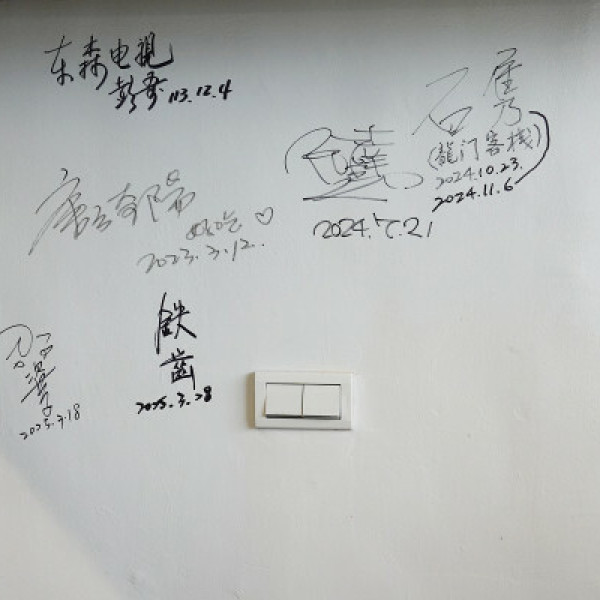 东森电視
彭哥 113.12.4
石隽
(龍门客栈)
2024.10.23.
2024.11.6
2024.7.21
好吃♡
2023.3.12.
鉄
齒
2025.3.28
2025.3.18